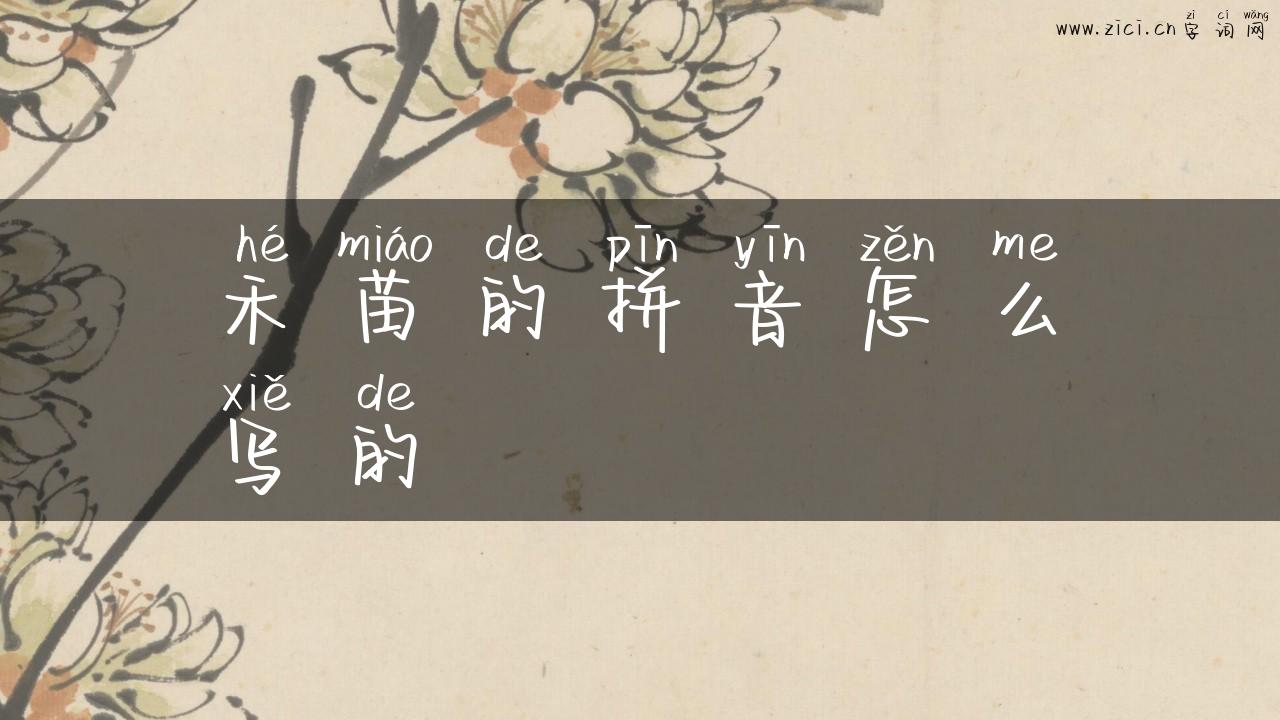 zì cí wǎng
www.zici.cn 字词网
hé miáo de pīn yīn zěn me
禾苗的拼音怎么
xiě de
写的